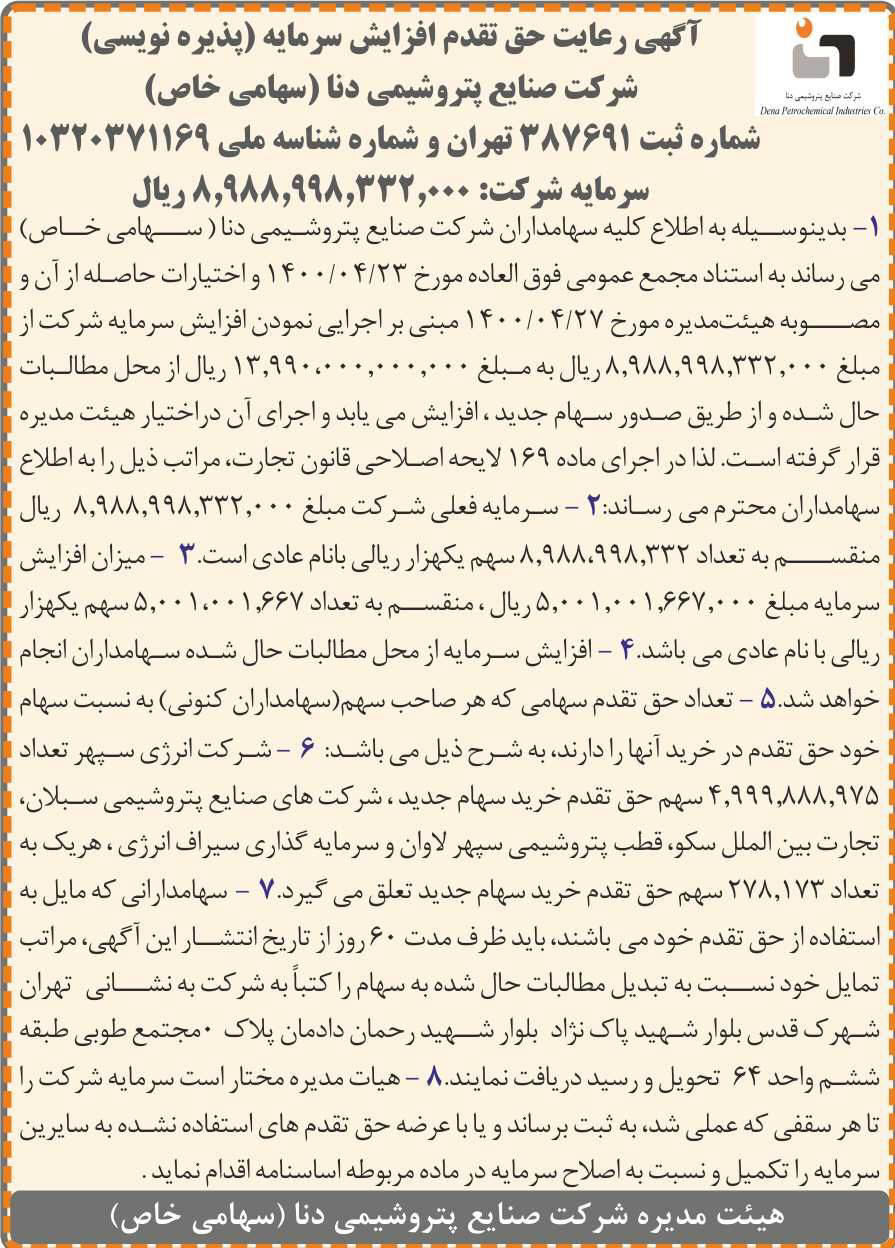 شرکت صنایع پتروشیمی دنا
Dena Petrochemical Industries Co.
آگهی رعایت حق تقدم افزایش سرمایه (پذیره نویسی)
شرکت صنایع پتروشیمی دنا (سهامی خاص)
شماره ثبت ۳۸۷۶۹۱ تهران و شماره شناسه ملی ۱۰۳۲۰۳۷۱۱۶۹
سرمایه شرکت: ۸,۹۸۸,۹۹۸,۳۳۲,۰۰۰ ریال
۱- بدینوسیله به اطلاع کلیه سهامداران شرکت صنایع پتروشیمی دنا ( سهامی خاص)
می رساند به استناد مجمع عمومی فوق العاده مورخ ۱۴۰۰/۰۴/۲۳ و اختیارات حاصله از آن و
مصوبه هیئت‌مدیره مورخ ۱۴۰۰/۰۴/۲۷ مبنی بر اجرایی نمودن افزایش سرمایه شرکت از
مبلغ ۸,۹۸۸,۹۹۸,۳۳۲,۰۰۰ ریال به مبلغ ۱۳,۹۹۰،۰۰۰,۰۰۰,۰۰۰ ریال از محل مطالبات
حال شده و از طریق صدور سهام جدید ، افزایش می یابد و اجرای آن دراختیار هیئت مدیره
قرار گرفته است. لذا در اجرای ماده ۱۶۹ لایحه اصلاحی قانون تجارت، مراتب ذیل را به اطلاع
سهامداران محترم می رساند:۲ - سرمایه فعلی شرکت مبلغ ۸,۹۸۸,۹۹۸,۳۳۲,۰۰۰ ریال
منقسم به تعداد ۸,۹۸۸،۹۹۸,۳۳۲ سهم یکهزار ریالی بانام عادی است.۳ - میزان افزایش
سرمایه مبلغ ۵,۰۰۱,۰۰۱,۶۶۷,۰۰۰ ریال ، منقسم به تعداد ۵,۰۰۱،۰۰۱,۶۶۷ سهم یکهزار
ریالی با نام عادی می باشد.۴ - افزایش سرمایه از محل مطالبات حال شده سهامداران انجام
خواهد شد.۵ - تعداد حق تقدم سهامی که هر صاحب سهم(سهامداران کنونی) به نسبت سهام
خود حق تقدم در خرید آنها را دارند، به شرح ذیل می باشد: ۶ - شرکت انرژی سپهر تعداد
۴,۹۹۹,۸۸۸,۹۷۵ سهم حق تقدم خرید سهام جدید ، شرکت های صنایع پتروشیمی سبلان،
تجارت بین الملل سکو، قطب پتروشیمی سپهر لاوان و سرمایه گذاری سیراف انرژی ، هریک به
تعداد ۲۷۸,۱۷۳ سهم حق تقدم خرید سهام جدید تعلق می گیرد.۷ - سهامدارانی که مایل به
استفاده از حق تقدم خود می باشند، باید ظرف مدت ۶۰ روز از تاریخ انتشار این آگهی، مراتب
تمایل خود نسبت به تبدیل مطالبات حال شده به سهام را کتباً به شرکت به نشانی تهران
شهرک قدس بلوار شهید پاک نژاد بلوار شهید رحمان دادمان پلاک ۰مجتمع طوبی طبقه
ششم واحد ۶۴ تحویل و رسید دریافت نمایند.۸ - هیات مدیره مختار است سرمایه شرکت را
تا هر سقفی که عملی شد، به ثبت برساند و یا با عرضه حق تقدم های استفاده نشده به سایرین
سرمایه را تکمیل و نسبت به اصلاح سرمایه در ماده مربوطه اساسنامه اقدام نماید .
هیئت مدیره شرکت صنایع پتروشیمی دنا (سهامی خاص)